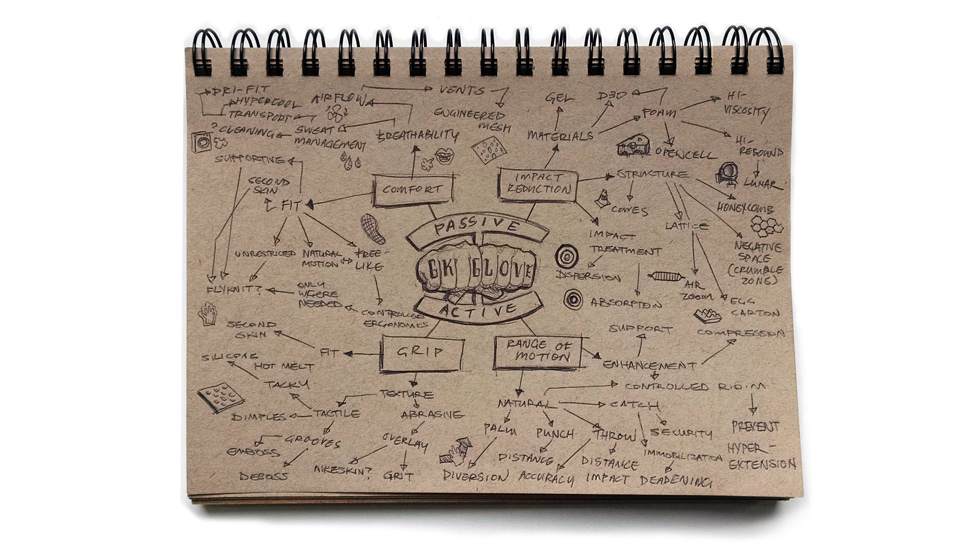 DRI-FIT
HYPERCOOL
TRANSPORT
? CLEANING
AIRFLOW
SWEAT
MANAGEMENT
VENTS
ENGINEERED
MESH
BREATHABILITY
SUPPORTIVE
SECOND
SKIN
FIT
COMFORT
UNRESTRICTED
NATURAL
MOTION
FREE-
LIKE
FLYKNIT?
ONLY
WHERE
NEEDED
CONTROLLED
ERGONOMICS
GEL
D3O
MATERIALS
FOAM
HI-
VISCOSITY
HI-
REBOUND
LUNAR
OPENCELL
IMPACT
REDUCTION
STRUCTURE
CONES
LATTICE
HONEYCOMB
NEGATIVE
SPACE
(CRUMBLE
ZONE)
IMPACT
TREATMENT
DISPERSION
ABSORPTION
AIR
ZOOM
EGG
CARTON
PASSIVE
GK GLOVE
ACTIVE
SECOND
SKIN
FIT
GRIP
SILICONE
HOT MELT
TACKY
TEXTURE
DIMPLES
TACTILE
ABRASIVE
GROOVES
EMBOSS
DEBOSS
OVERLAY
NIKESKIN?
GRIT
RANGE OF
MOTION
SUPPORT
COMPRESSION
ENHANCEMENT
CONTROLLED R.O.M
PREVENT
HYPER-
EXTENSION
NATURAL
CATCH
PALM
PUNCH
THROW
SECURITY
IMMOBILIZATION
DISTANCE
DISTANCE
DIVERSION
ACCURACY
IMPACT DEADENING